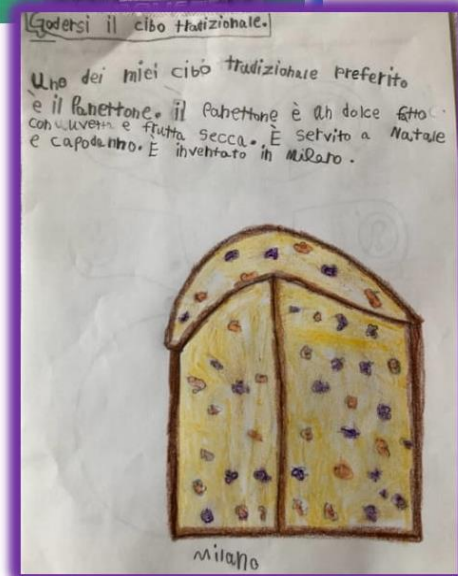 Godersi il cibo tradizionale.
Uno dei miei cibo tradizionale preferito
è il Panettone. il Panettone è un dolce fatto
con uvetta e frutta secca. È servito a Natale
e capodanno. È inventato in milano.
milano